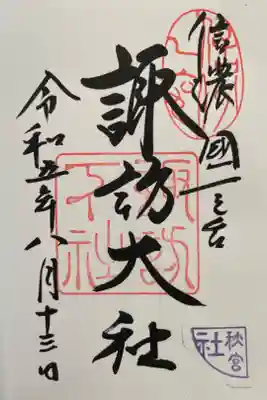 信濃國一之宮
諏訪大社
令和五年八月十三日
諏訪大社
秋宮
社